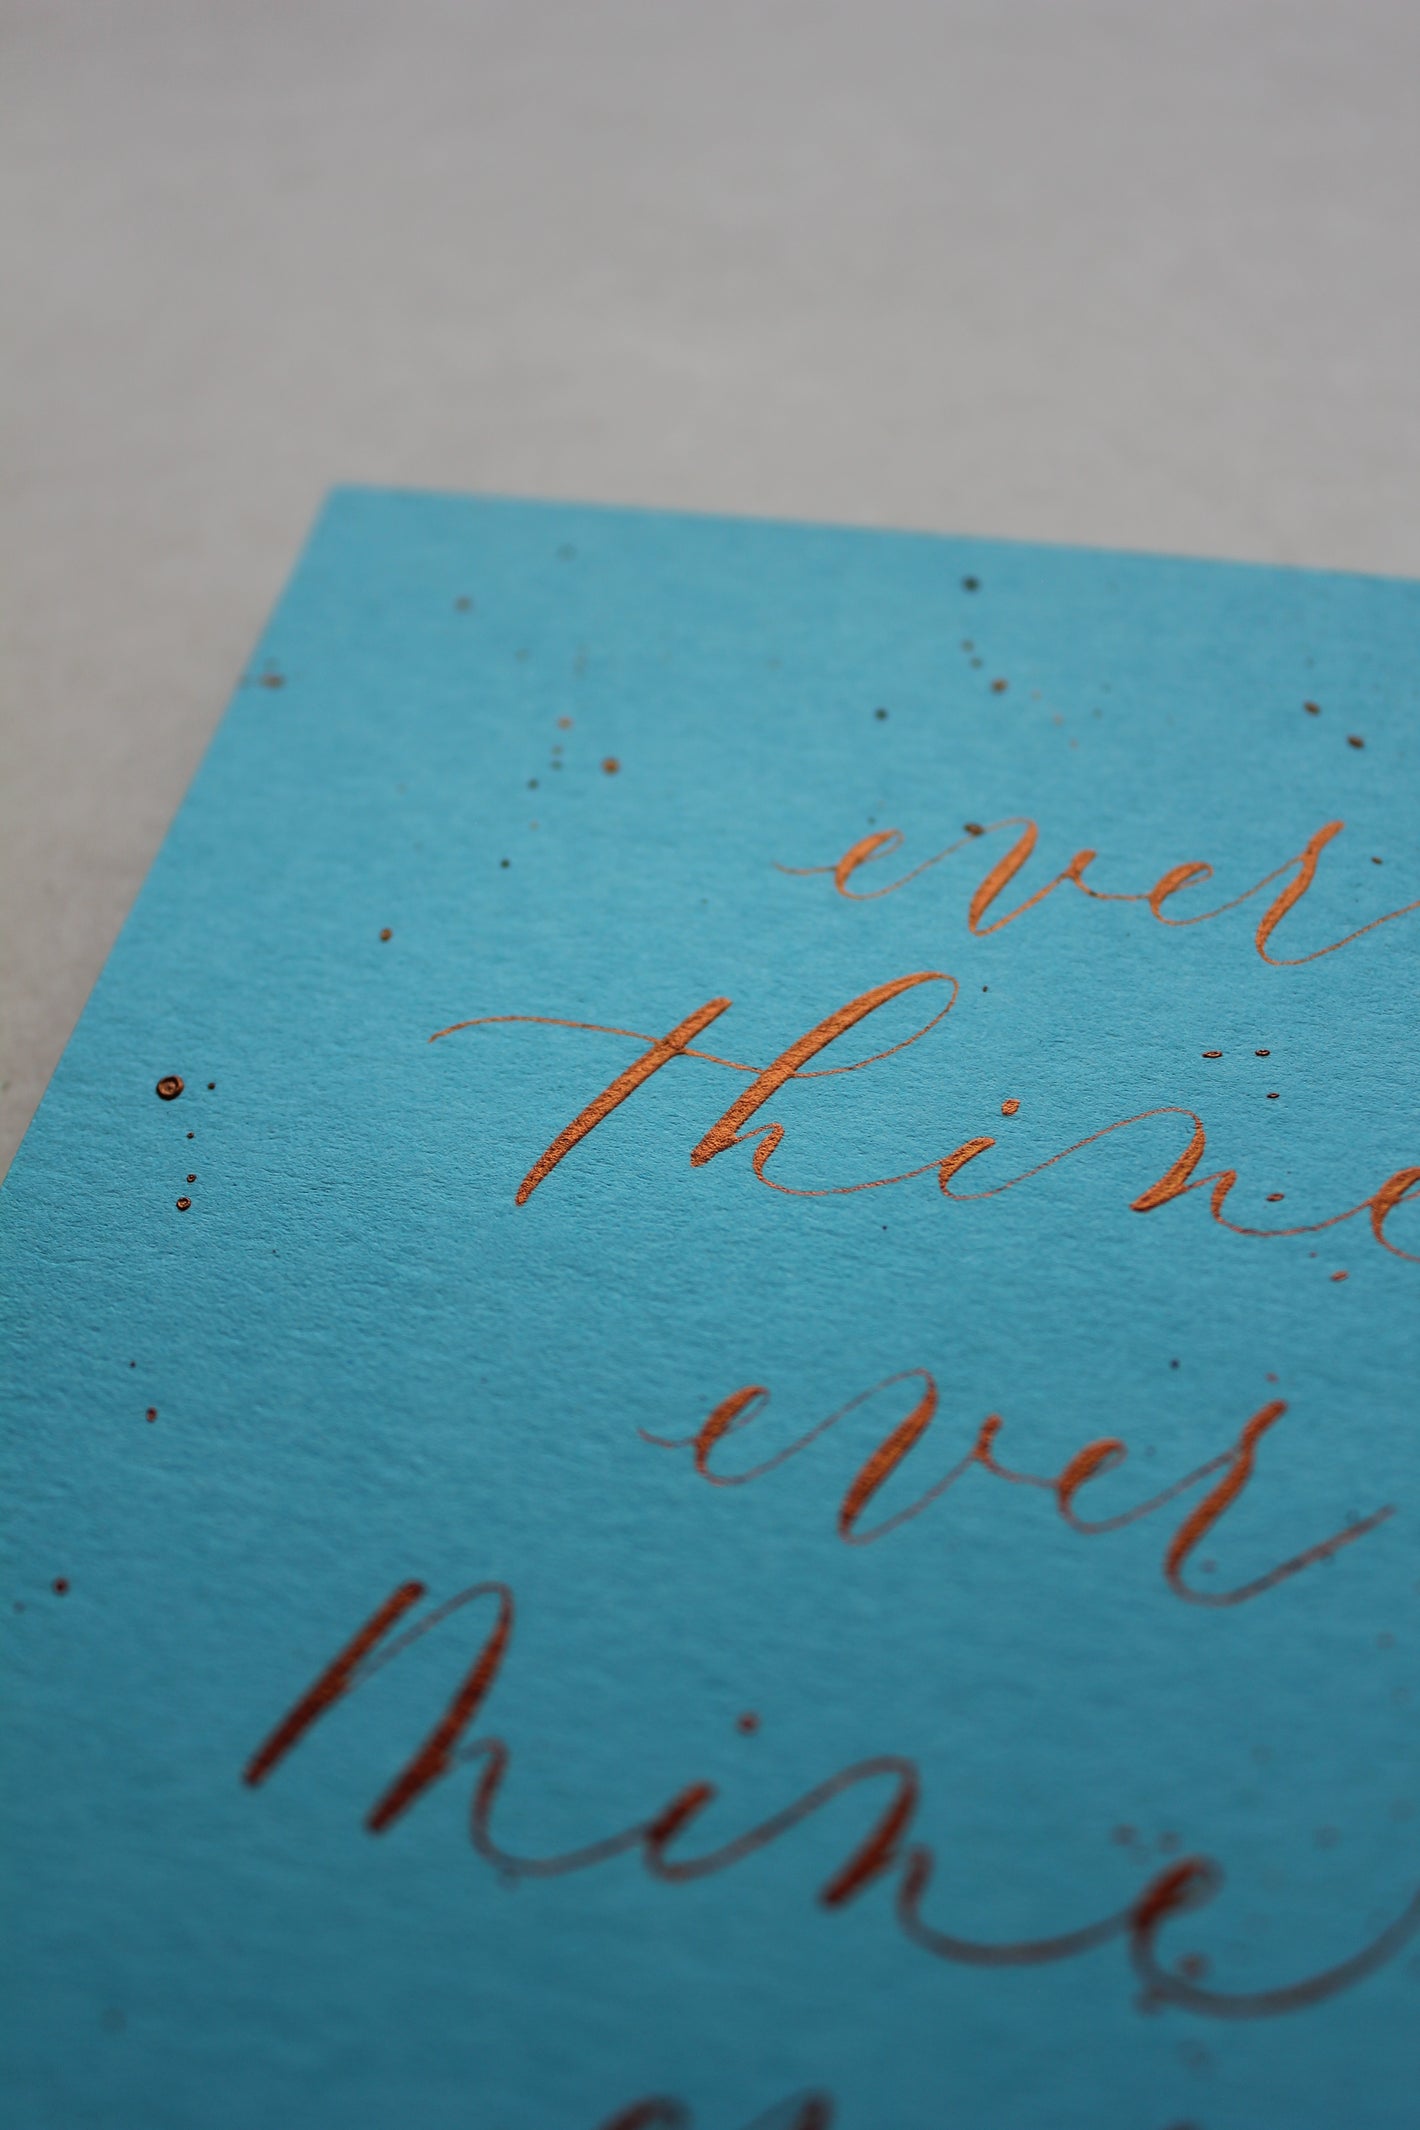 ever
thine
ever
Mine